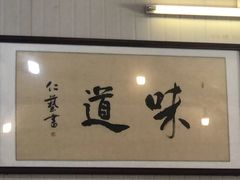 味道
仁藝書